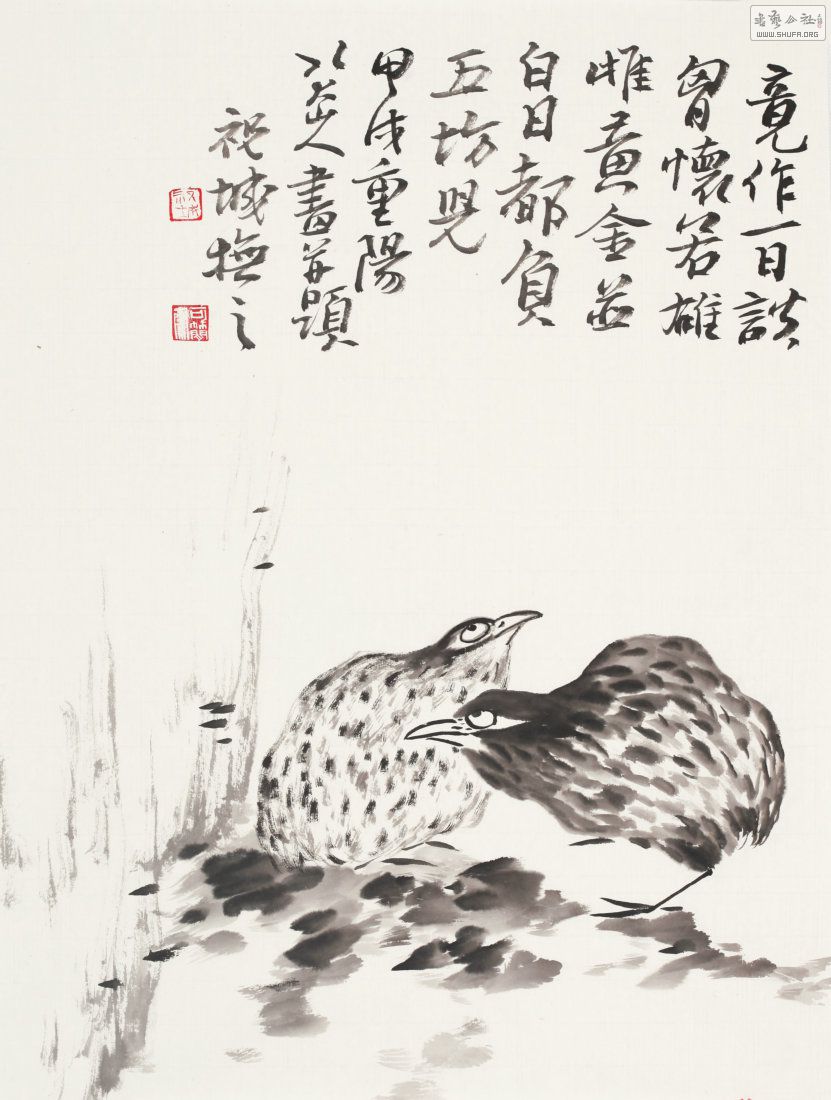 竟作一日談
胷懷若雄
雌黃金並
白日都負
五坊兒
甲戌重陽
八大山人畫并題
祝城橅之
書藝公社
WWW.SHUFA.ORG